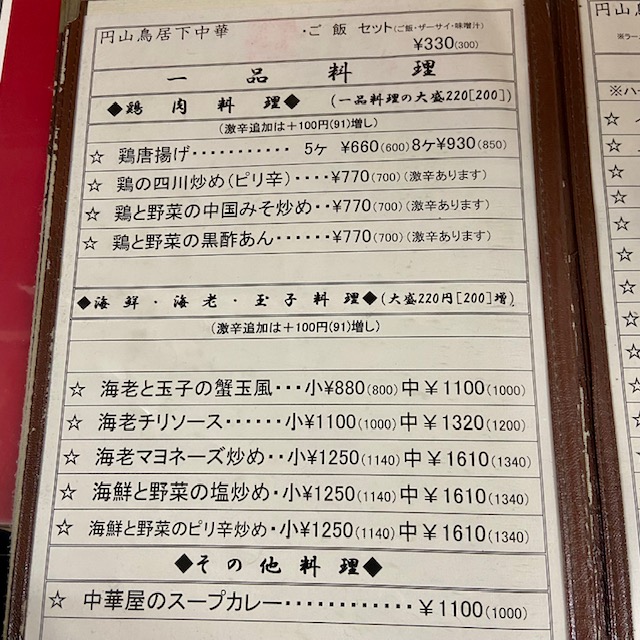 円山鳥居下中華 ・ご飯 セット(ご飯・ザーサイ・味噌汁)
¥330(300)
一品料理
◆鶏肉料理◆ (一品料理の大盛220[200])
(激辛追加は＋100円(91)増し)
☆ 鶏唐揚げ・・・・・・・・・・・ 5ケ ¥660(600) 8ケ¥930(850)
☆ 鶏の四川炒め(ピリ辛)・・・・¥770(700)(激辛あります)
☆ 鶏と野菜の中国みそ炒め・・¥770(700)(激辛あります)
☆ 鶏と野菜の黒酢あん・・・・・・¥770(700)(激辛あります)
◆海鮮・海老・玉子料理◆(大盛220円[200]増)
(激辛追加は＋100円(91)増し)
☆ 海老と玉子の蟹玉風・・・小¥880(800) 中￥1100(1000)
☆ 海老チリソース・・・・・・小¥1100(1000) 中￥1320(1200)
☆ 海老マヨネーズ炒め・・小¥1250(1140) 中￥1610(1340)
☆ 海鮮と野菜の塩炒め・小¥1250(1140) 中￥1610(1340)
☆ 海鮮と野菜のピリ辛炒め・小¥1250(1140) 中￥1610(1340)
◆その他料理◆
☆ 中華屋のスープカレー・・・・・・・・・・・・￥1100(1000)
円山鳥
※ラー
※ハー
☆
☆
☆
☆
☆
☆
☆
☆
☆
☆
☆
☆